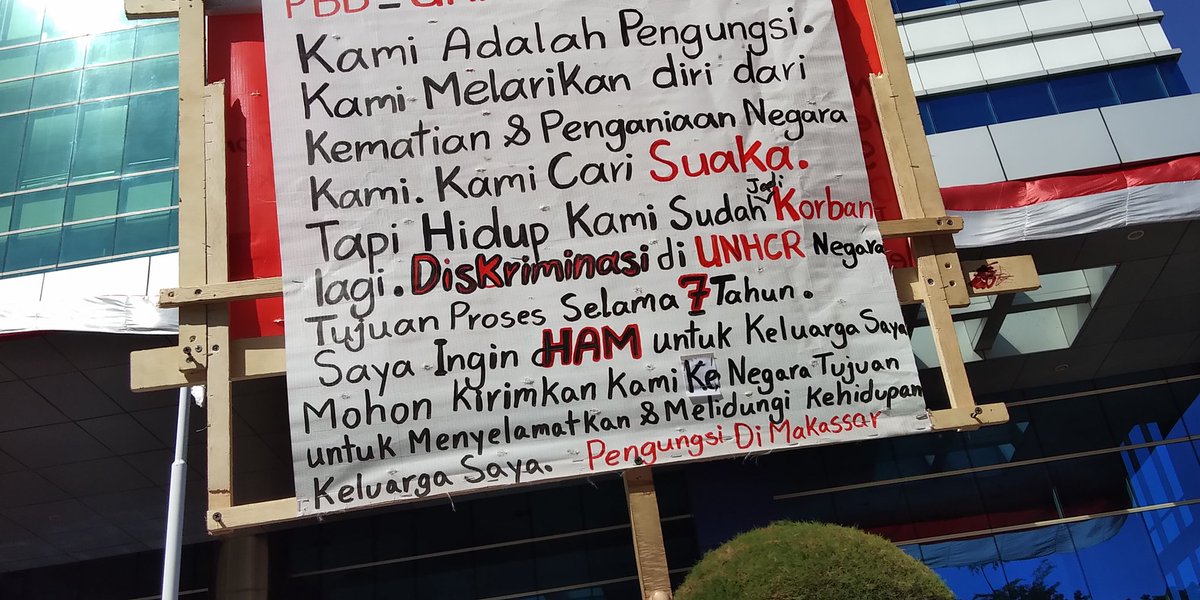 PBB -
Kami Adalah Pengungsi.
Kami Melarikan diri dari
Kematian & Penganiaan Negara
Kami. Kami Cari Suaka.
Tapi Hidup Kami Sudah Jadi Korban
lagi. Diskriminasi di UNHCR Negara
Tujuan Proses Selama 7 Tahun.
Saya Ingin HAM untuk Keluarga Saya
Mohon Kirimkan Kami Ke Negara Tujuan
untuk Menyelamatkan & Melidungi Kehidupan
Keluarga Saya. Pengungsi Di Makassar